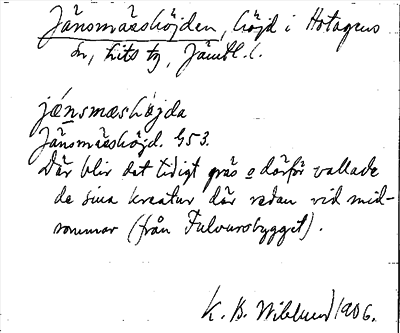 Jänsmässhöjden, höjd i Hotagens
sn, Lits tg, Jämtl. l.
jǽnsmæshøjda
Jänsmässhöjd. G53.
Där blir det tidigt gräs o därför vallade
de sina kreatur där redan vid mid-
sommar (från Fulvurobygget).
K. B. Wiklund 1906.